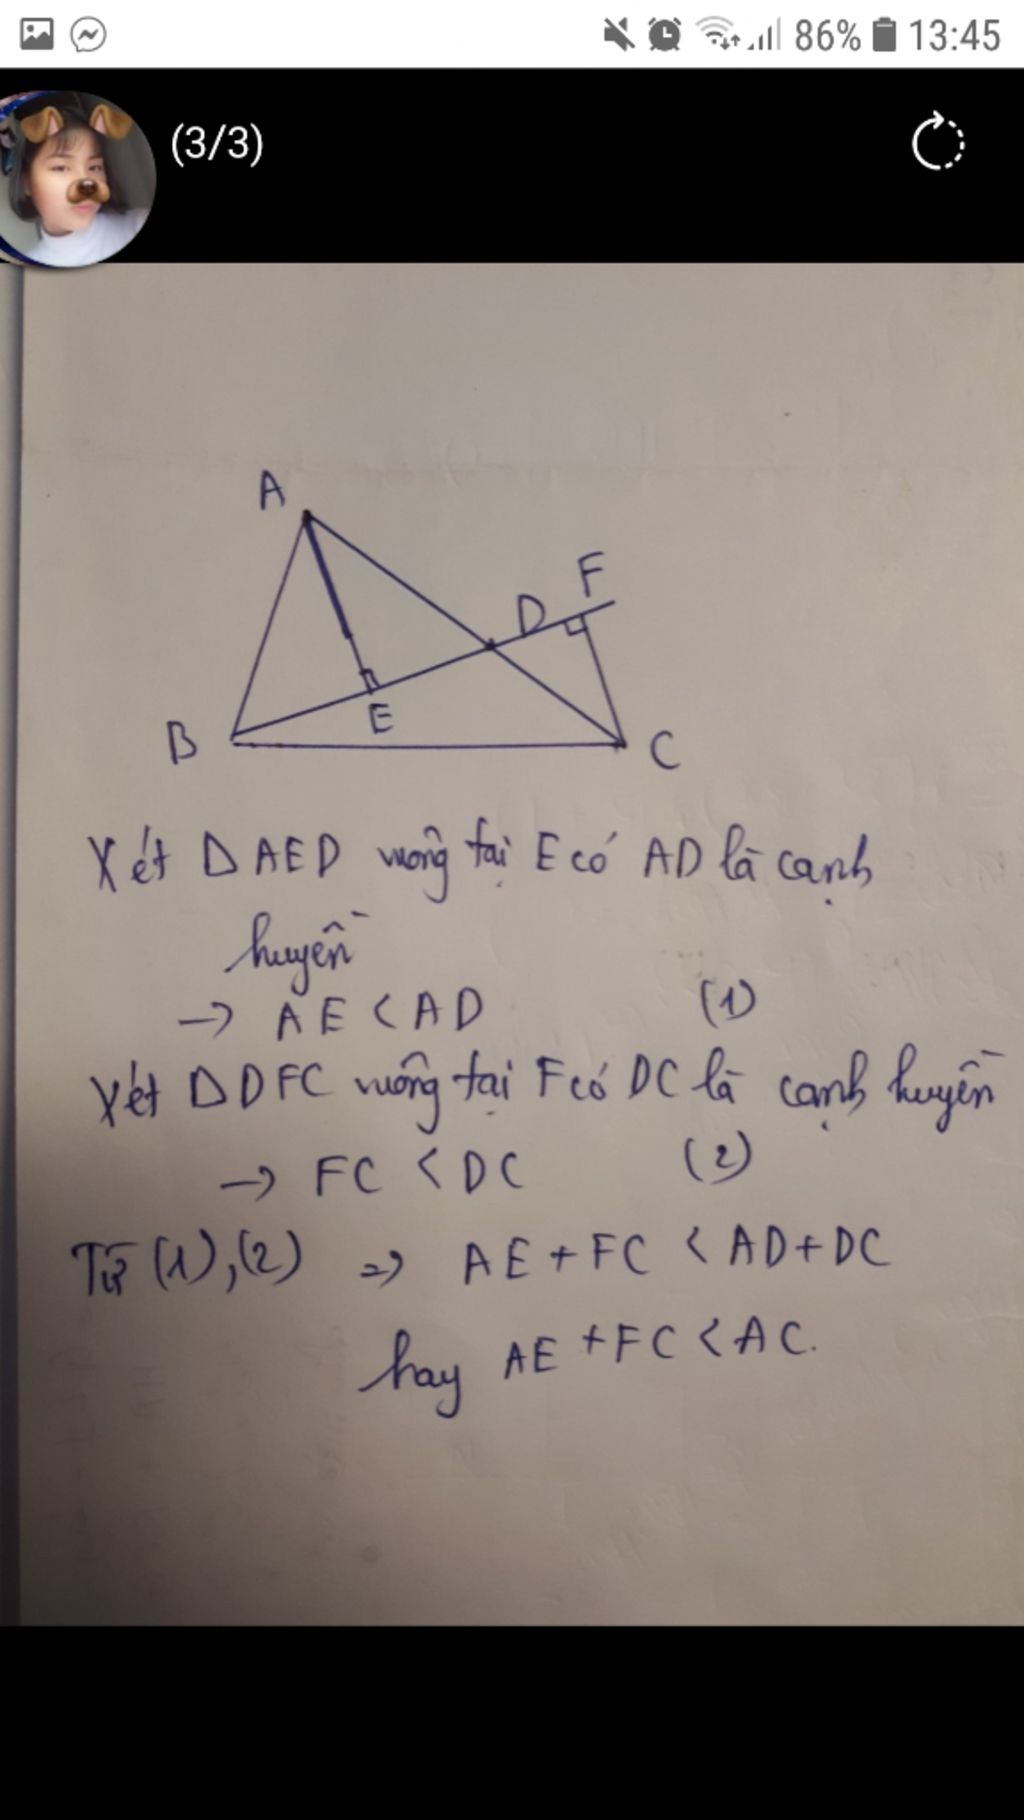 86% 13:45
(3/3)
A
F
D
E
B
C
Xét Δ AED vuông tại E có AD là cạnh
huyền
→ AE < AD (1)
Xét Δ DFC vuông tại F có DC là cạnh huyền
→ FC < DC (2)
Từ (1), (2) ⇒ AE + FC < AD + DC
hay AE + FC < AC.